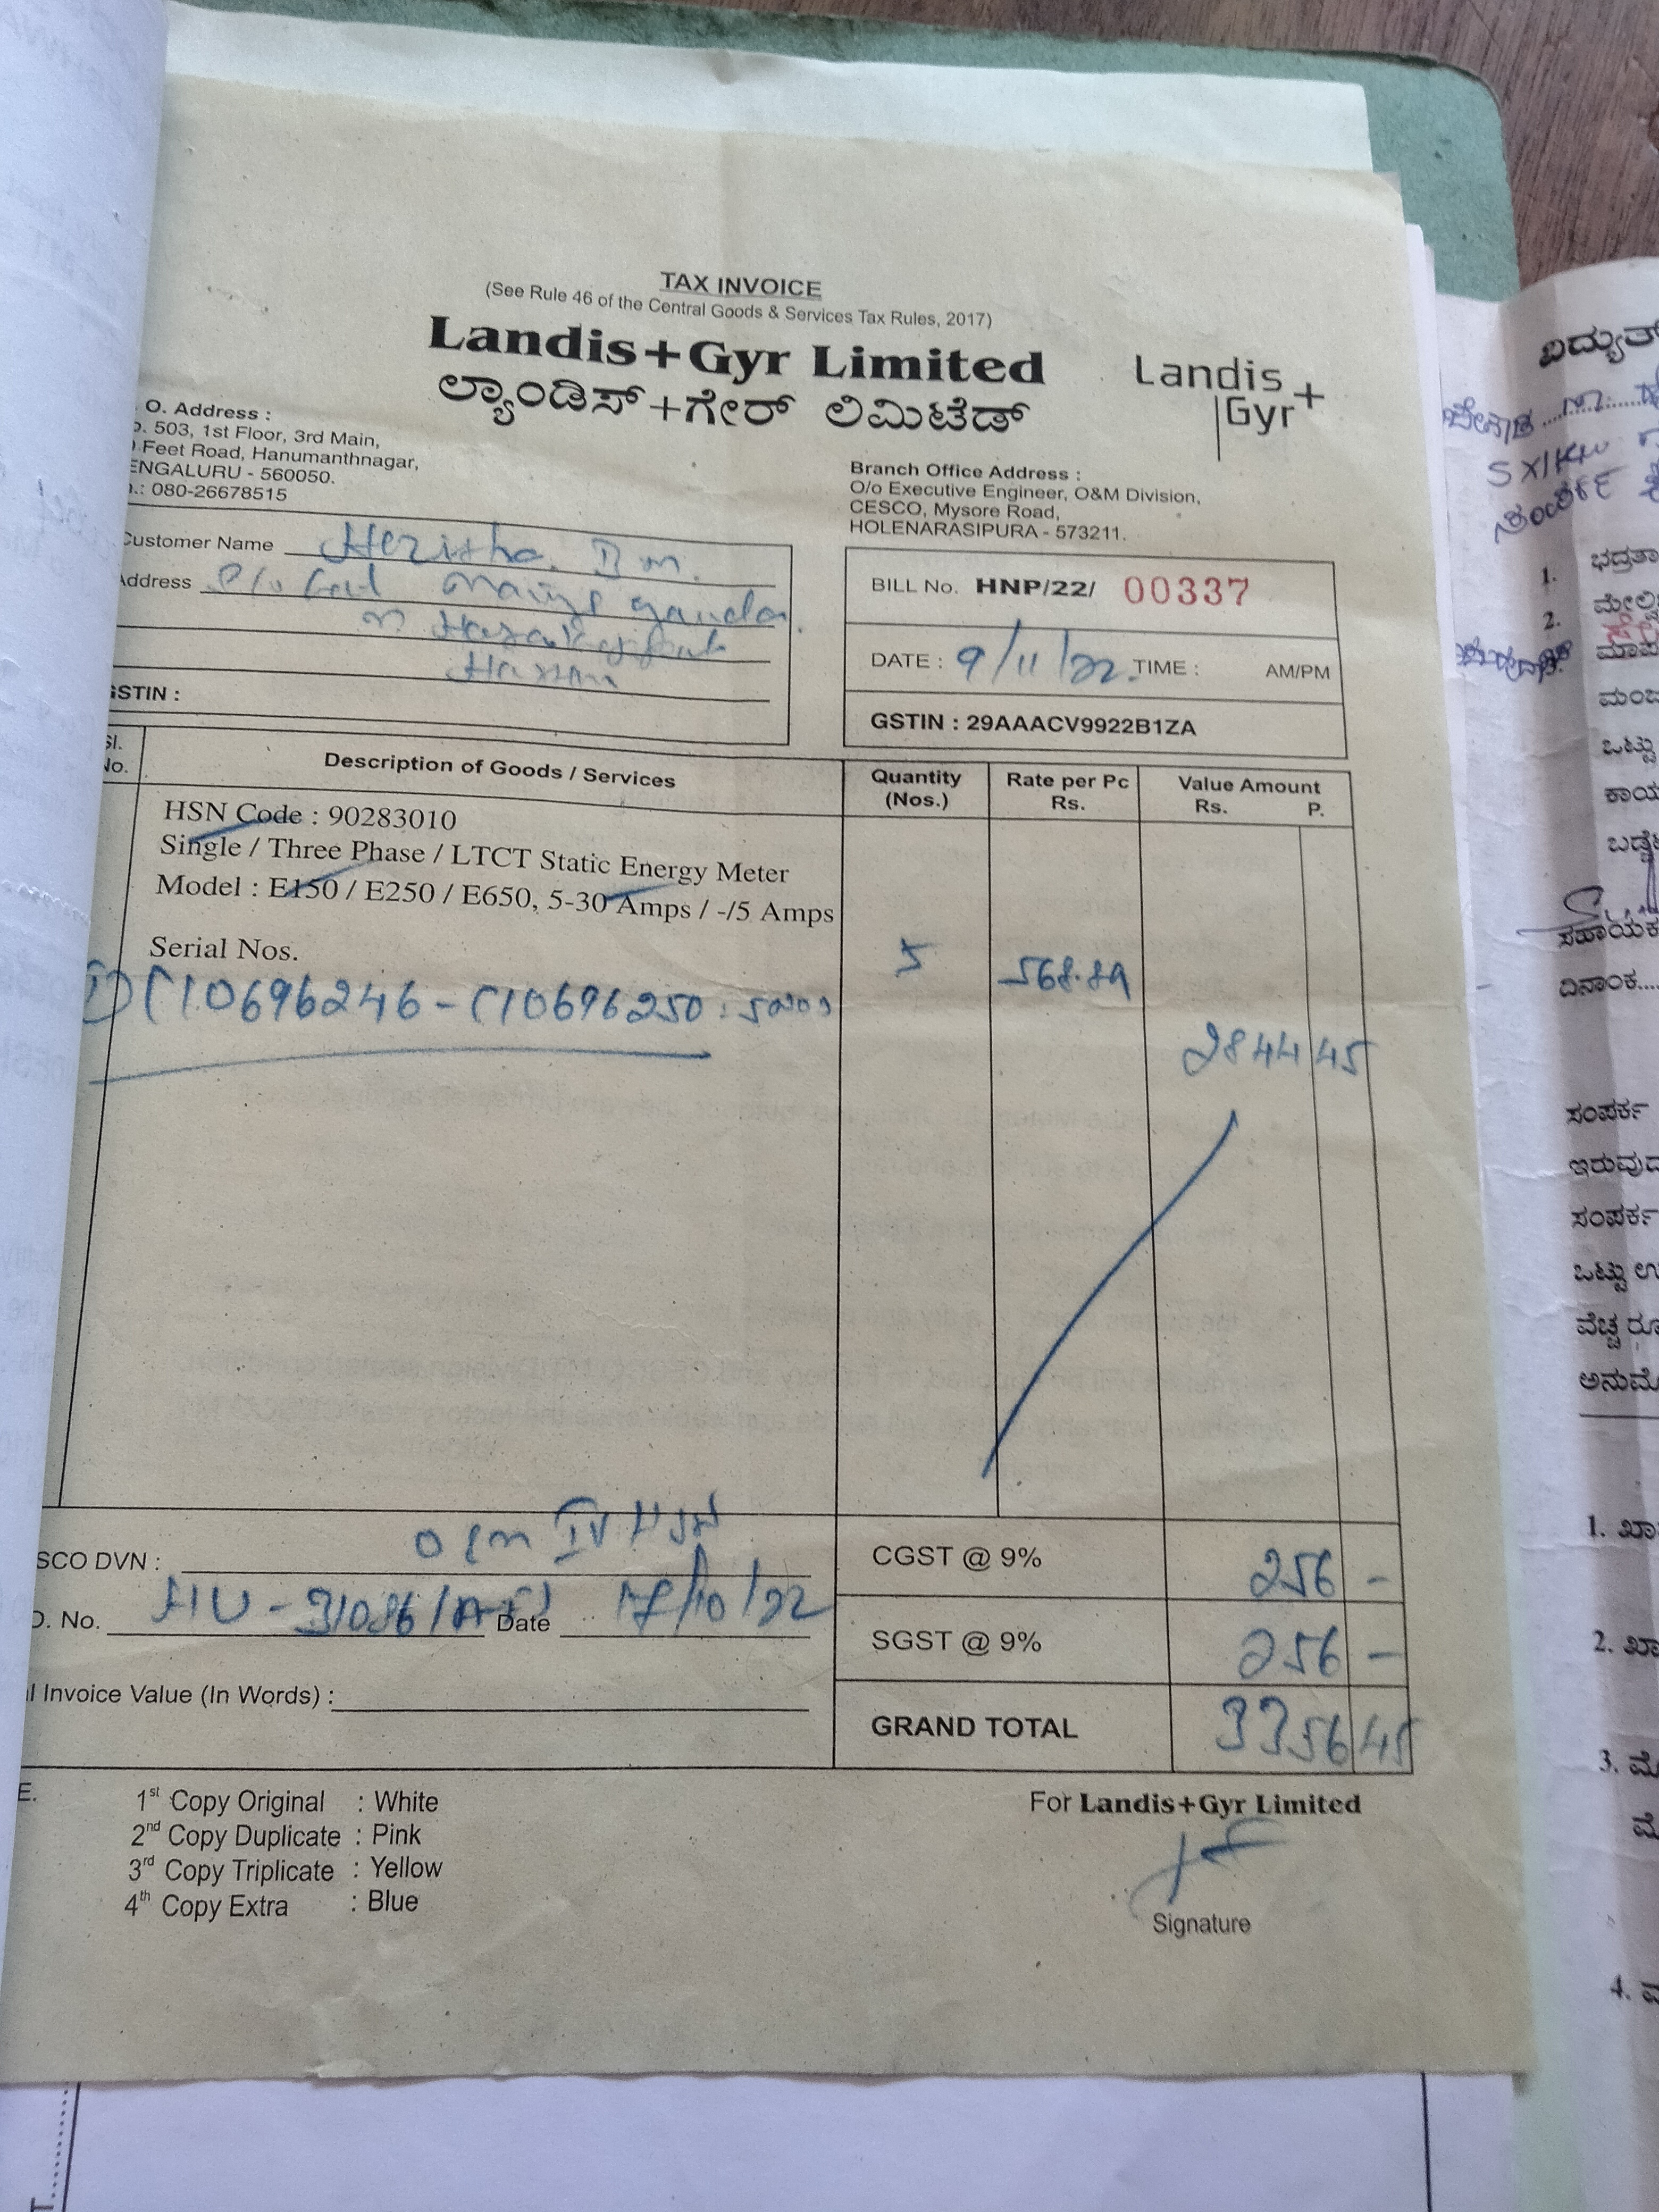 TAX INVOICE
(See Rule 46 of the Central Goods & Services Tax Rules, 2017)
Landis+Gyr Limited
ಲ್ಯಾಂಡಿಸ್+ಗೇರ್ ಲಿಮಿಟೆಡ್
Landis+
Gyr
O. Address :
503, 1st Floor, 3rd Main,
Feet Road, Hanumanthnagar,
ENGALURU - 560050.
.: 080-26678515
Branch Office Address :
O/o Executive Engineer, O&M Division,
CESCO, Mysore Road,
HOLENARASIPURA - 573211.
Customer Name
Address
GSTIN :
BILL No. HNP/22/ 00337
DATE : 9/11/22. TIME : AM/PM
GSTIN : 29AAACV9922B1ZA
Sl. No.
Description of Goods / Services
Quantity (Nos.)
Rate per Pc Rs.
Value Amount Rs. P.
HSN Code : 90283010
Single / Three Phase / LTCT Static Energy Meter
Model : E150 / E250 / E650, 5-30 Amps / -/5 Amps
Serial Nos.
1) C10696246 - C10696250 : 5 5 568.89
2844 45
SCO DVN :
O. No. Date 17/10/22
Invoice Value (In Words) :
CGST @ 9% 256 -
SGST @ 9% 256 -
GRAND TOTAL 3356 45
E.
1st Copy Original : White
2nd Copy Duplicate : Pink
3rd Copy Triplicate : Yellow
4th Copy Extra : Blue
For Landis+Gyr Limited
Signature
1. ಭದ್ರತಾ
2.
ಒಟ್ಟು
ದಿನಾಂಕ....
ಸಂಪರ್ಕ
ಸಂಪರ್ಕ
ಒಟ್ಟು
ವೆಚ್ಚ
1.
2.
3.
4.